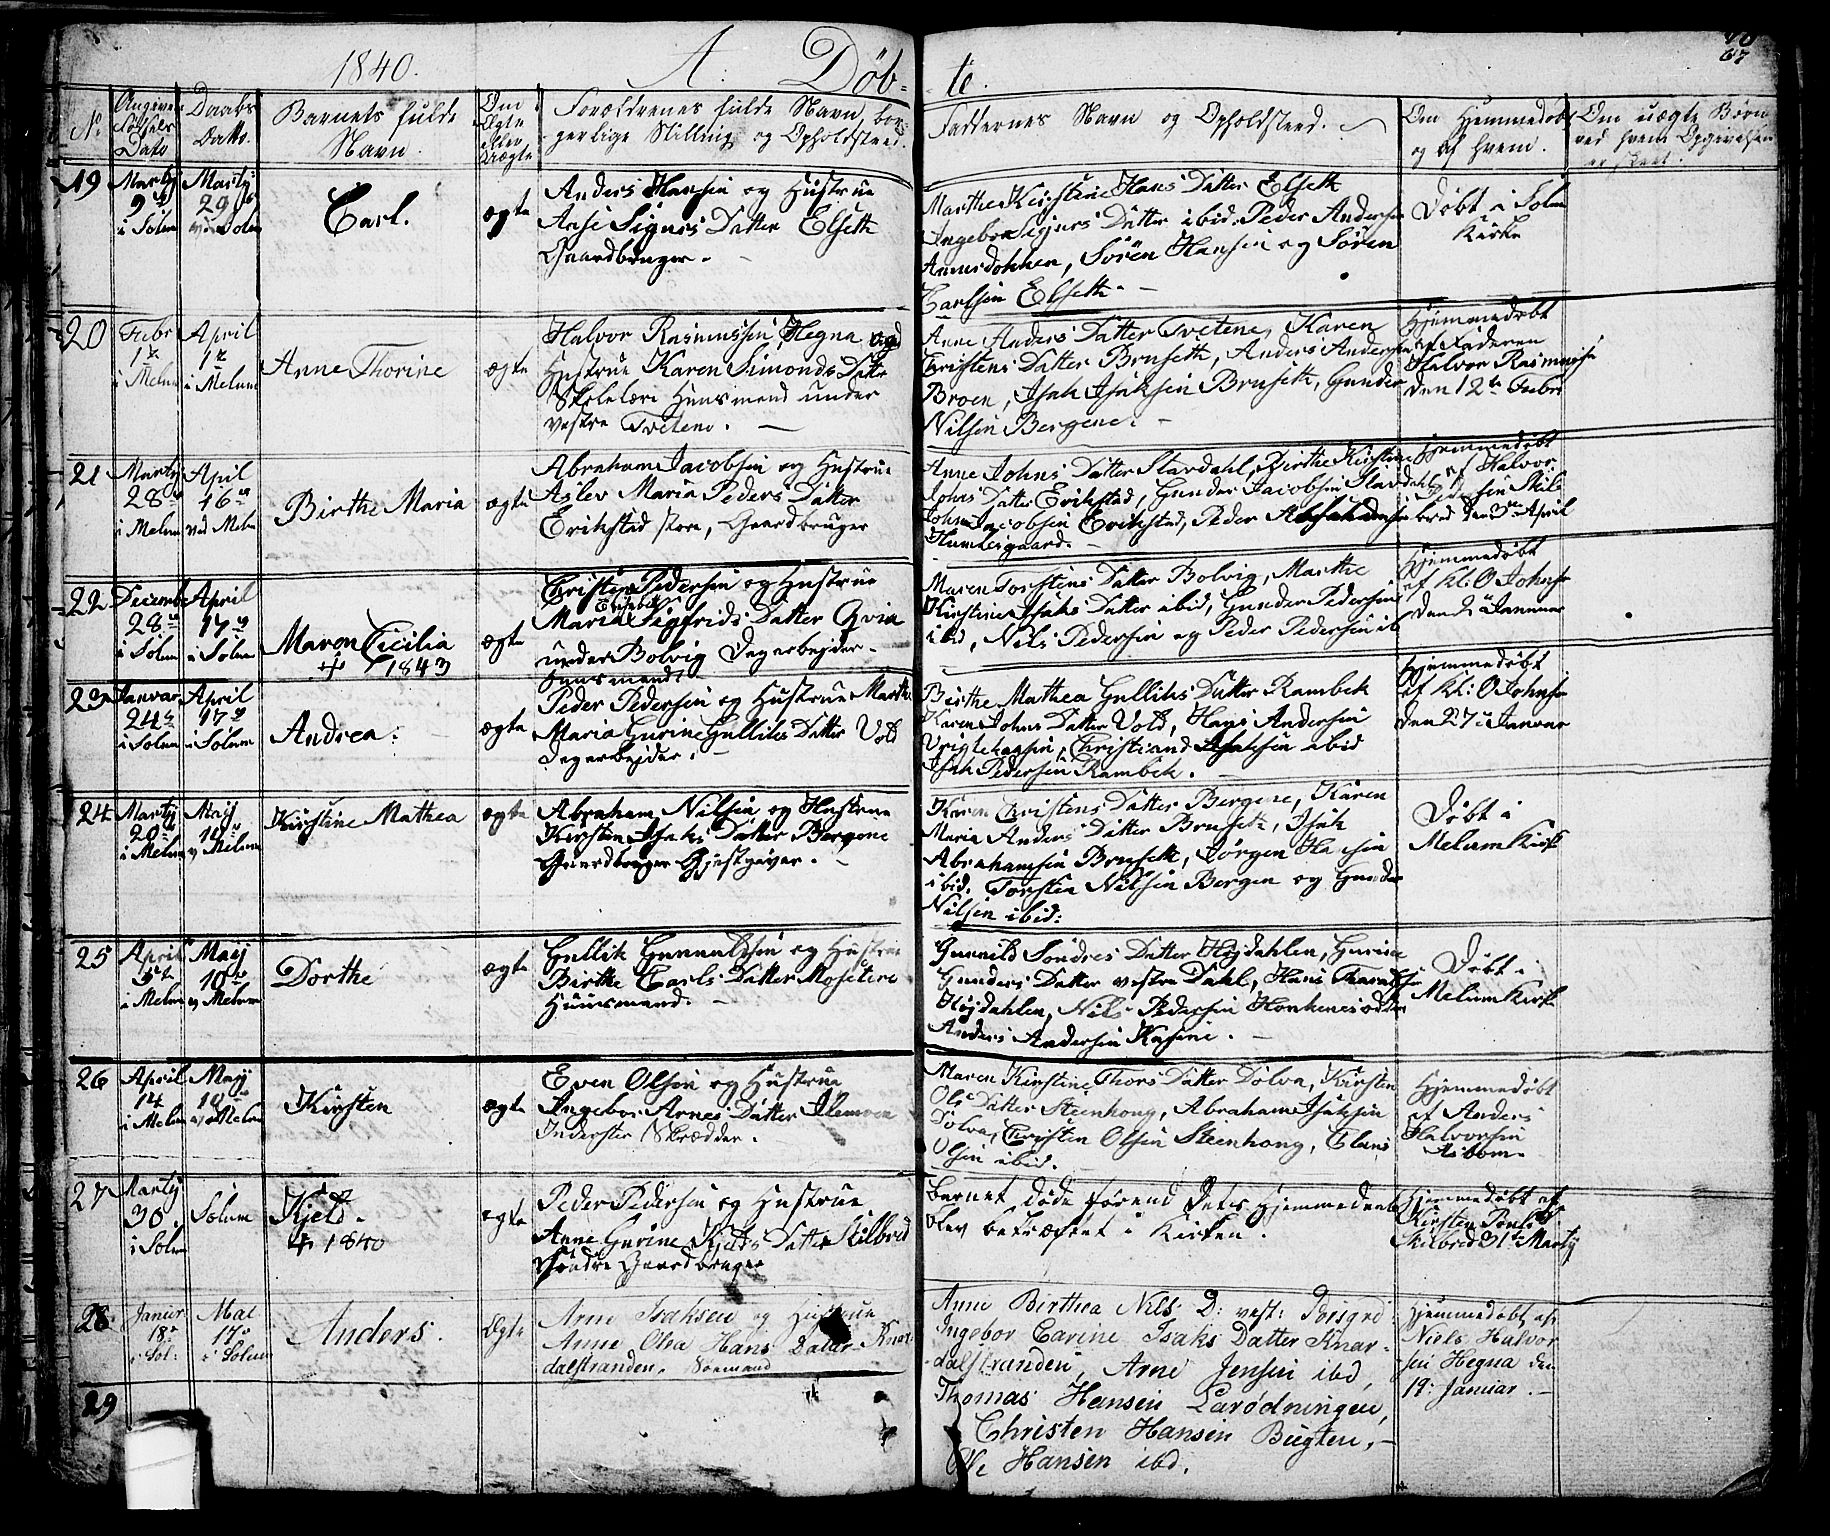 1840.
A. Døb-
te.
67
No
Angiven Fødsels Dato
Daabs Datto.
Barnets fulde Navn.
Om Ægte eller Uægte
Forældrenes fulde Navn, bor-
gerlige Stilling og Opholdsteed.
Faddernes Navn og Opholdsteed.
Om Hjemmedøbt og af hvem.
Om uægte Børn
ved hvem Opgivelsen
er skeet.
19
Martij 9de i Solum
Martij 29de ved Solum
Carl.
ægte
Anders Hansen og Hustrue
Anne Signes Datter Elseth
Gaardbruger.
Marthe Kirstine Hans Datter Elseth
Ingebor Signes Datter ibid: Peder Andersen
Søren Hansen og Søren
Carlsen Elseth.
Døbt i Solum
Kirke
20
Febr 1te i Melum
April 1te i Melum
Anne Thorine
ægte
Halvor Rasmussen Hegna og
Hustrue Karen Simonds Datter
Skolelærer Huusmand under
vestre Tvetene.
Anne Anders Datter Tvetene, Karen
Christens Datter Bruseth, Anders Andersen
Broen, Isak Isaksen Bruseth, Gunder
Nilsen Bergene.
Hjemmedøbt
af Faderen
Halvor Rasmussen
den 12te Febr
21
Martij 28de i Melum
April 16de ved Melum
Birthe Maria
ægte
Abraham Jacobsen og Hustrue
Aslev Maria Peders Datter
Erikstad store, Gaardbruger
Anne Johns Datter Stavdahl, Birthe Kirstine
Johns Datter Erikstad, Gunder Jacobsen Stavdahl
John Jacobsen Erikstad, Peder Abrahamsen
Humlesgaard.
Hjemmedøbt
af Halvor
Pedersen Skil-
bred den 3de April
22
December 28de i Solum
April 17de i Solum
Maren Cicilia
+ 1843
ægte
Christen Pedersen og Hustrue
Maria Elisabeth Sigfrids Datter Qvia
under Bolvig Dagarbejder.
Huusmand
Maren Torstens Datter Bolvig, Marthe
Kirstine Isaks Datter ibid, Gunder Pedersen
ibid, Nils Pedersen og Peder Pedersen ib
Hjemmedøbt
af Kl: O Johnsen
den 2de Januar
23
Januar 24de i Solum
April 17de i Solum
Andrea.
ægte
Peder Pedersen og Hustrue Marthe
Maria Gurine Gulliks Datter Vold
Dagarbejder.
Birthe Mathea Gulliks Datter Rambek
Karen Johns Datter Vold, Hans Andersen
Christiand Isaksen ibid
Isak Pedersen Rambek.
Hjemmedøbt
af Kl: O Johnsen
den 27de Januar
24
Martij 20de i Melum
Maij 10de v Melum
Kirstine Mathea
ægte
Abraham Nilsen og Hustrue
Kirsten Isaks Datter Bergene
Gaardbruger Gjestgiver.
Karen Christens Datter Bergene, Karen
Maria Anders Datter Bruseth, Isak
Abrahamsen Bruseth, Jørgen Hansen
ibid. Torsten Nilsen Bergen og Gunder
Nilsen ibid:
Døbt i
Melum Kirke
25
April 5te i Melum
Maij 10de v Melum
Dorthe
ægte
Gullik Gunnulfsen og Hustrue
Birthe Carls Datter Mosetere
Huusmand.
Gunnild Søndres Datter Højdahlen, Gurine
Gunders Datter vestre Dahl, Hans
Højdahlen, Nils Pedersen
Anders Andersen Kasine.
Døbt i
Melum Kirke
26
April 14 i Melum
Maij 10de v Melum
Kirsten
ægte
Even Olsen og Hustrue
Ingebor Arnes Datter
Inderster Skrædder.
Maren Kirstine Thors Datter Dolva, Kirsten
Ols Datter Steenhong, Abraham Isaksen
Dolva, Christen Olsen Steenhong, Claus
Olsen ibid.
Hjemmedøbt
af Anders
Halvorsen
27
Martij 30. i Solum
Solum
Kjeld.
+ 1840
ægte
Peder Pedersen og Hustrue
Anne Gurine Kjelds Datter Skilbred
Søndre Gaardbruger
Barnet døde førend dets Hjemmedaab
blev bekræftet i Kirken.
Hjemmedøbt af
Kirsten Pouls D
Skilbred 31te Martij
28
Januar 18de i Sol:
Mai 17de i Solum
Anders.
Ægte
Arne Isaksen og Hustrue
Anne Olea Hans Datter Knar-
dalstranden. Sømand
Anne Birthea Nils D: vest: Porsgrd
Ingebor Carine Isaks Datter Knar-
dalstranden, Arne Jensen ibd,
Thomas Hansen Larødningen,
Christen Hansen Bugten,
Ole Hansen ibd.
Hjemmedøbt af
Niels Halvor-
sen Hegna den
19: Januar.
29